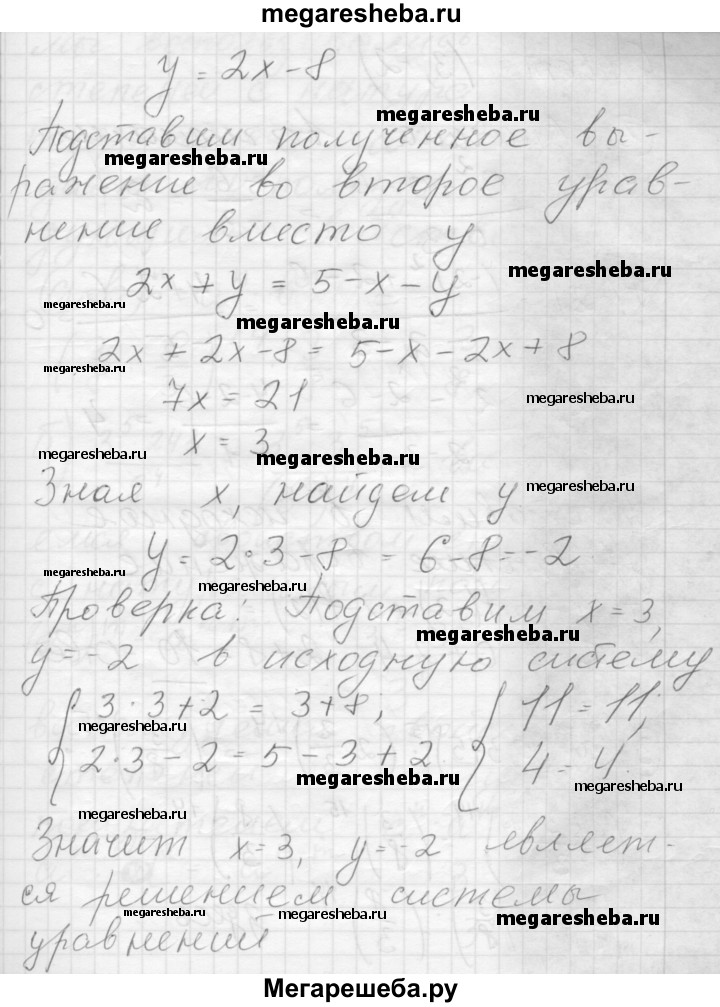 megaresheba.ru
y = 2x - 8
megaresheba.ru
Подставим полученное вы-
megaresheba.ru
ражение во второе урав-
нение вместо y
megaresheba.ru
2x + y = 5 - x - y
megaresheba.ru
megaresheba.ru
2x + 2x - 8 = 5 - x - 2x + 8
megaresheba.ru
7x = 21
megaresheba.ru
x = 3
megaresheba.ru
megaresheba.ru
Зная x, найдем y
megaresheba.ru
y = 2·3 - 8 = 6 - 8 = -2
megaresheba.ru
megaresheba.ru
Проверка: Подставим x = 3,
megaresheba.ru
y = -2 в исходную систему
{ 3·3 + 2 = 3 + 8; { 11 = 11;
megaresheba.ru
megaresheba.ru
2·3 - 2 = 5 - 3 + 2. 4 = 4.
megaresheba.ru
megaresheba.ru
megaresheba.ru
Значит x = 3, y = -2 являет-
megaresheba.ru
ся решением системы
megaresheba.ru
megaresheba.ru
megaresheba.ru
уравнений
Мегарешеба.ру